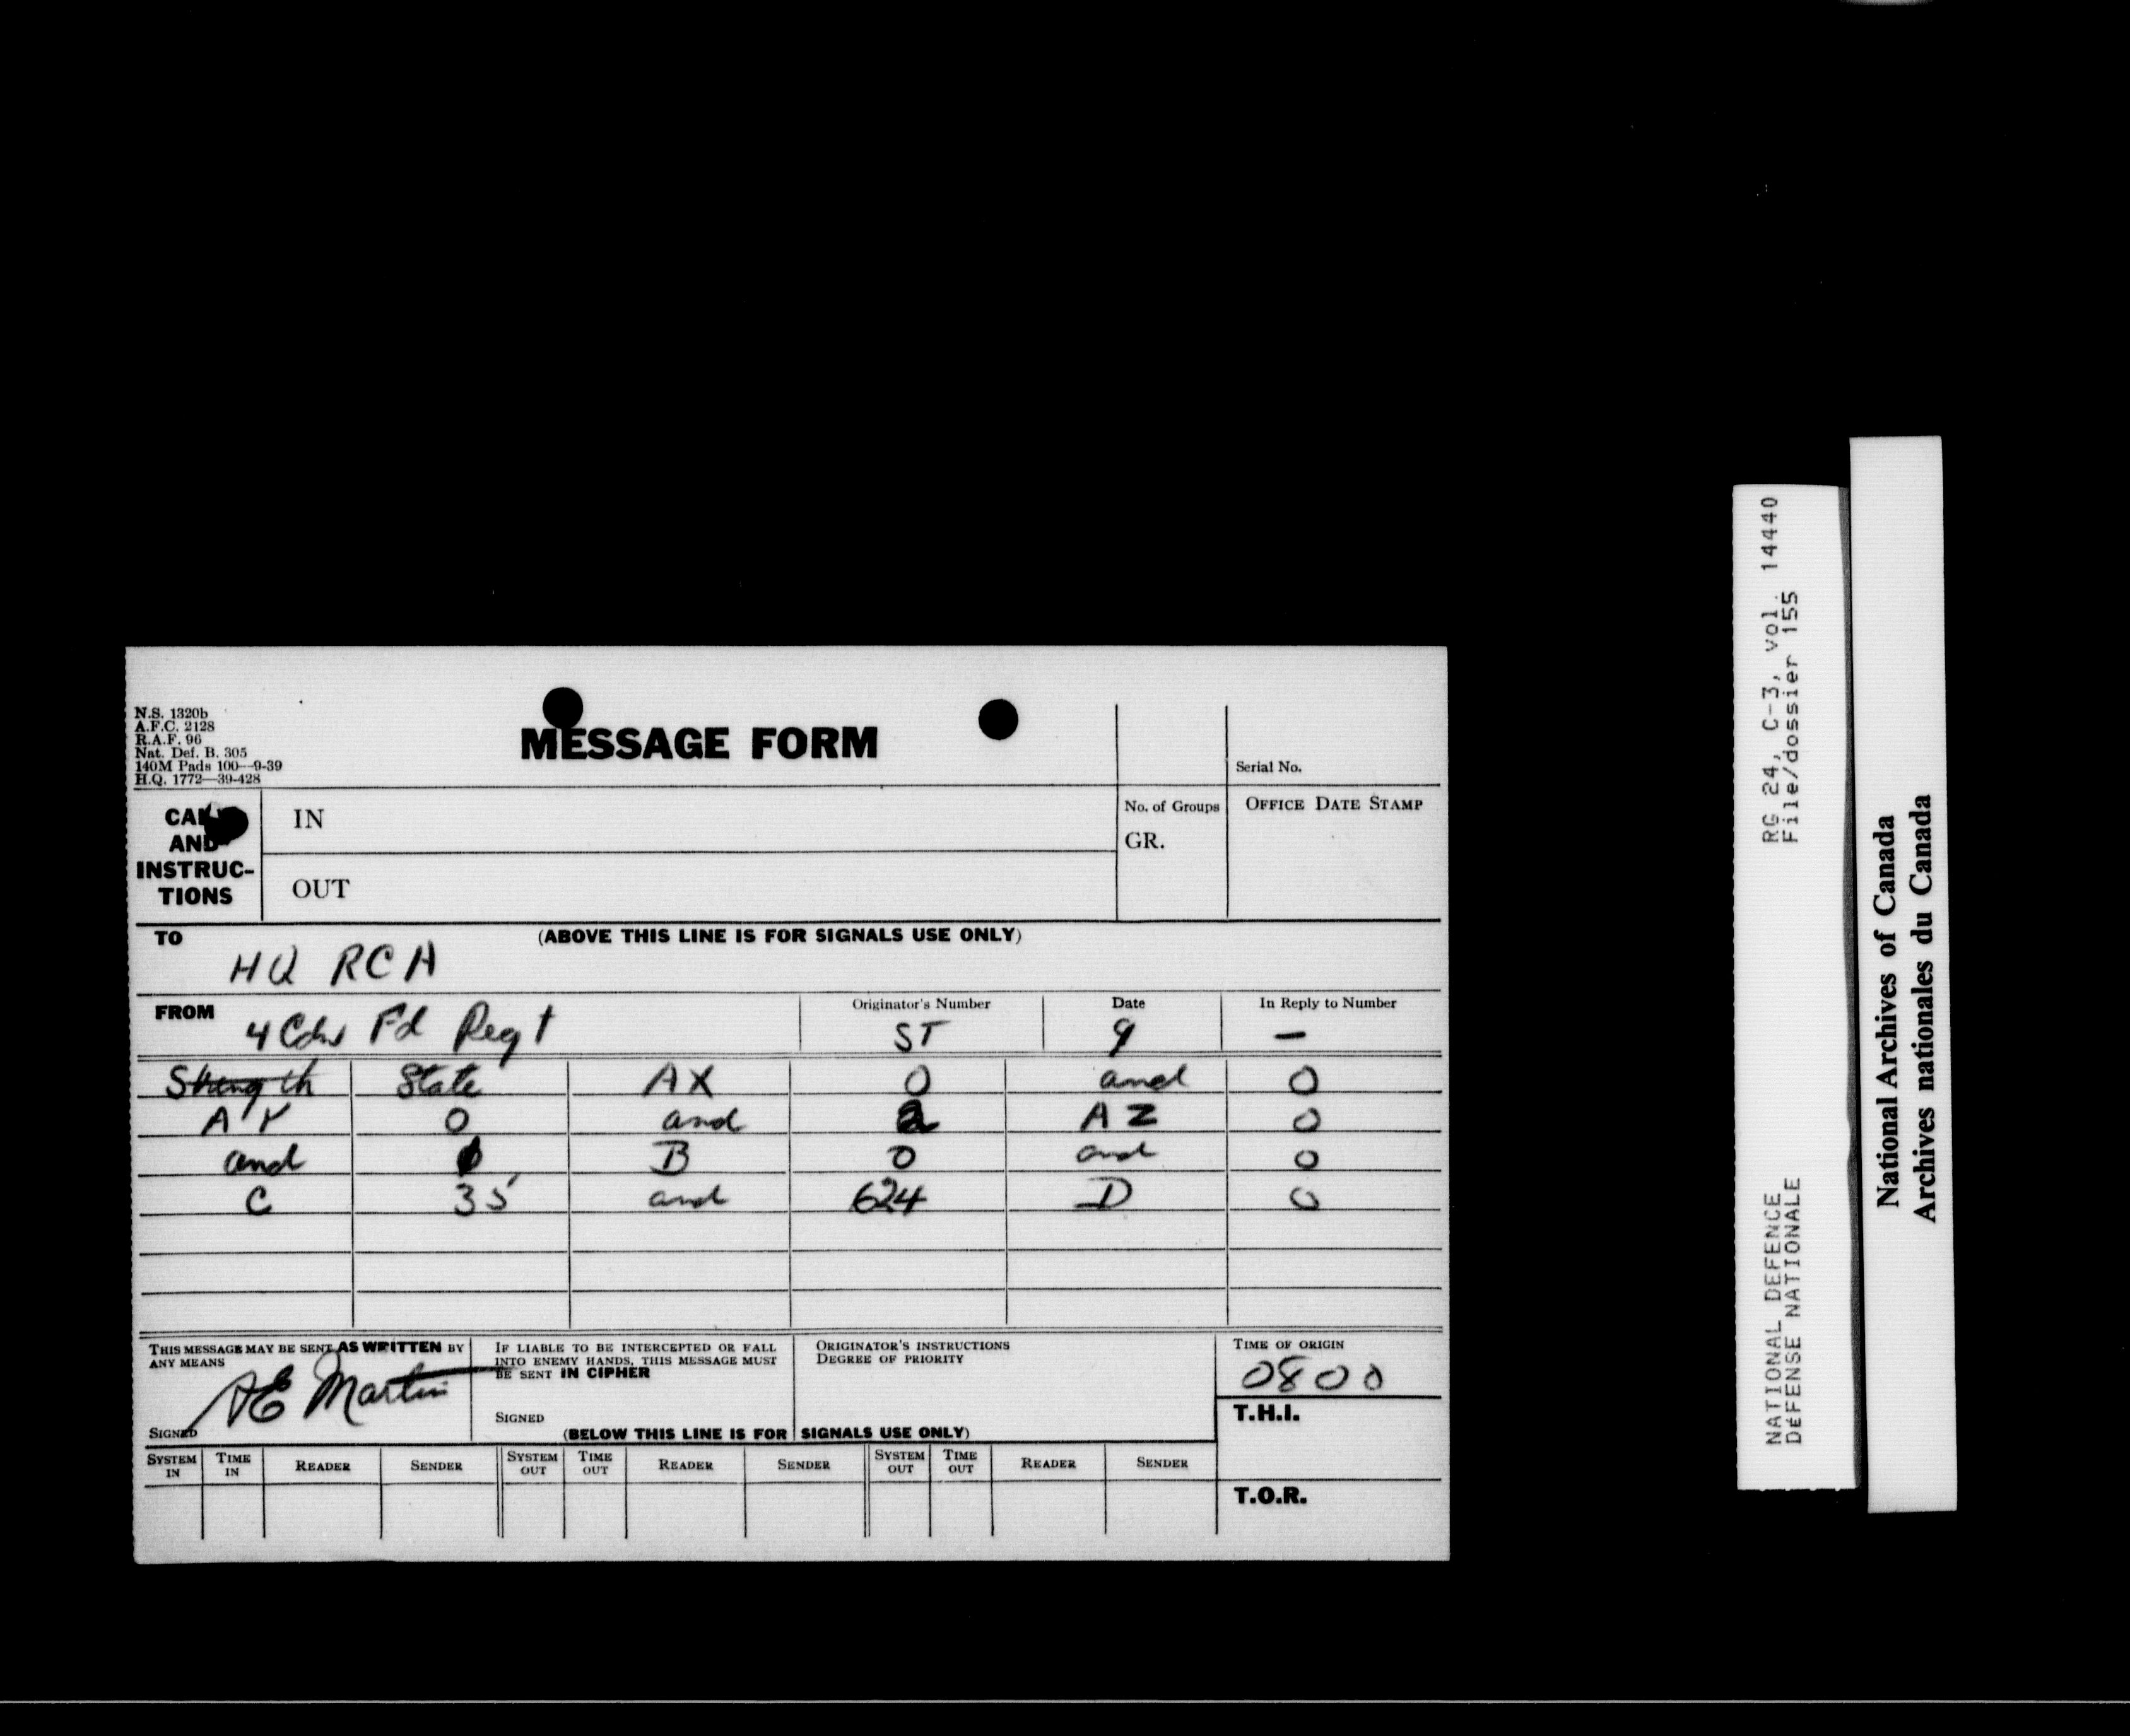 N.S. 1320b
A.F.C. 2128
R.A.F. 96
Nat. Def. B. 305
140M Pads 100—9-39
H.Q. 1772—39-428
MESSAGE FORM
Serial No.
CALL
AND
INSTRUC-
TIONS
IN
OUT
No. of Groups
GR.
OFFICE DATE STAMP
TO
(ABOVE THIS LINE IS FOR SIGNALS USE ONLY)
HQ RCA
FROM
4 Cdn Fd Regt
Originator's Number
ST
Date
9
In Reply to Number
—
Strength State AX 0 and 0
AY 0 and 2 AZ 0
and B 0 and 0
C 35 and 624 D 0
THIS MESSAGE MAY BE SENT AS WRITTEN BY
ANY MEANS
AE Martin
SIGNED
IF LIABLE TO BE INTERCEPTED OR FALL
INTO ENEMY HANDS, THIS MESSAGE MUST
BE SENT IN CIPHER
SIGNED
ORIGINATOR'S INSTRUCTIONS
DEGREE OF PRIORITY
TIME OF ORIGIN
0800
T.H.I.
(BELOW THIS LINE IS FOR SIGNALS USE ONLY)
SYSTEM IN TIME IN READER SENDER SYSTEM OUT TIME OUT READER SENDER SYSTEM OUT TIME OUT READER SENDER
T.O.R.
RG 24, C-3, vol. 14440
File/dossier 155
NATIONAL DEFENCE
DÉFENSE NATIONALE
National Archives of Canada
Archives nationales du Canada